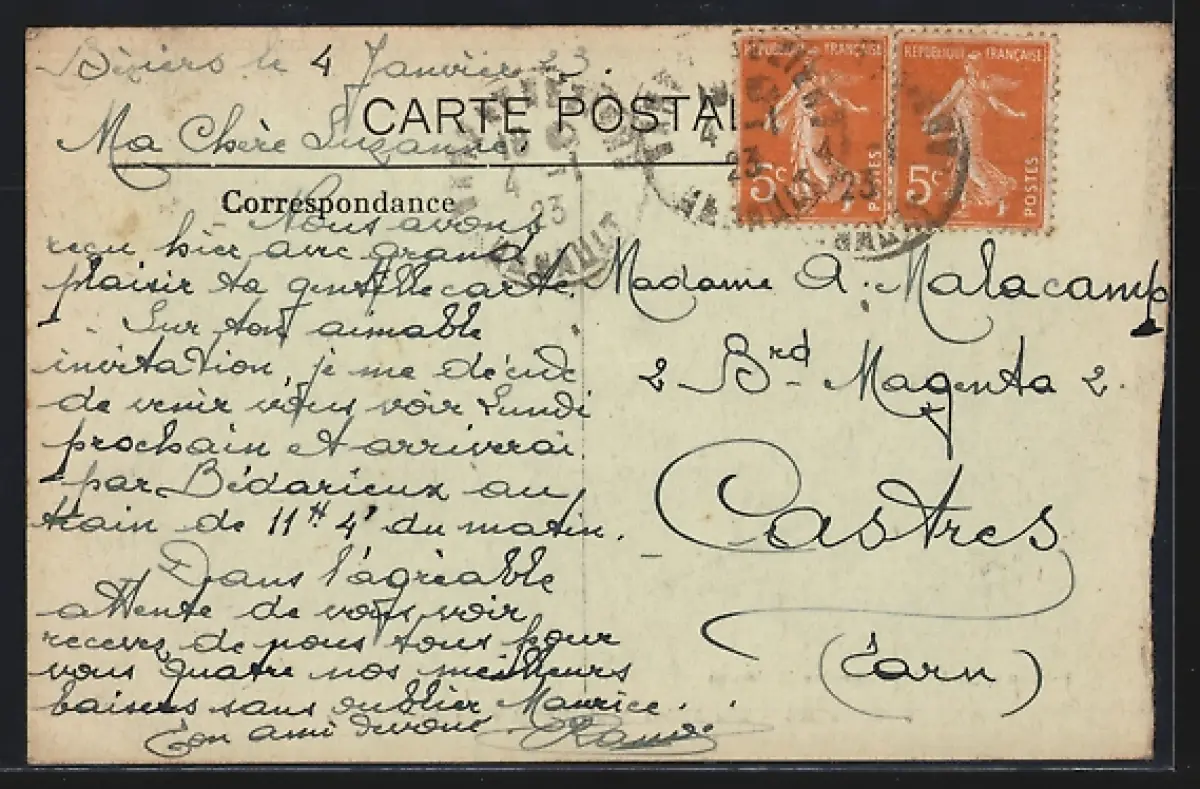 Béziers le 4 Janvier 23.
CARTE POSTAL
Ma Chère Suzanne.
Correspondance
Nous avons
reçu hier avec grand
plaisir ta gentille carte.
Sur ton aimable
invitation, je me décide
de venir vous voir Lundi
prochain et arriverai
par Bédarieux au
train de 11H 4' du matin.
Dans l'agréable
attente de vous voir
recevez de nous tous pour
vous quatre nos meilleurs
baisers sans oublier Maurice.
Ton ami dévoué
REPUBLIQUE FRANÇAISE
5c POSTES
REPUBLIQUE FRANÇAISE
5c POSTES
4 -1 23
HERAULT
Madame A. Malacamp
2 Brd Magenta 2.
Castres
(Tarn)